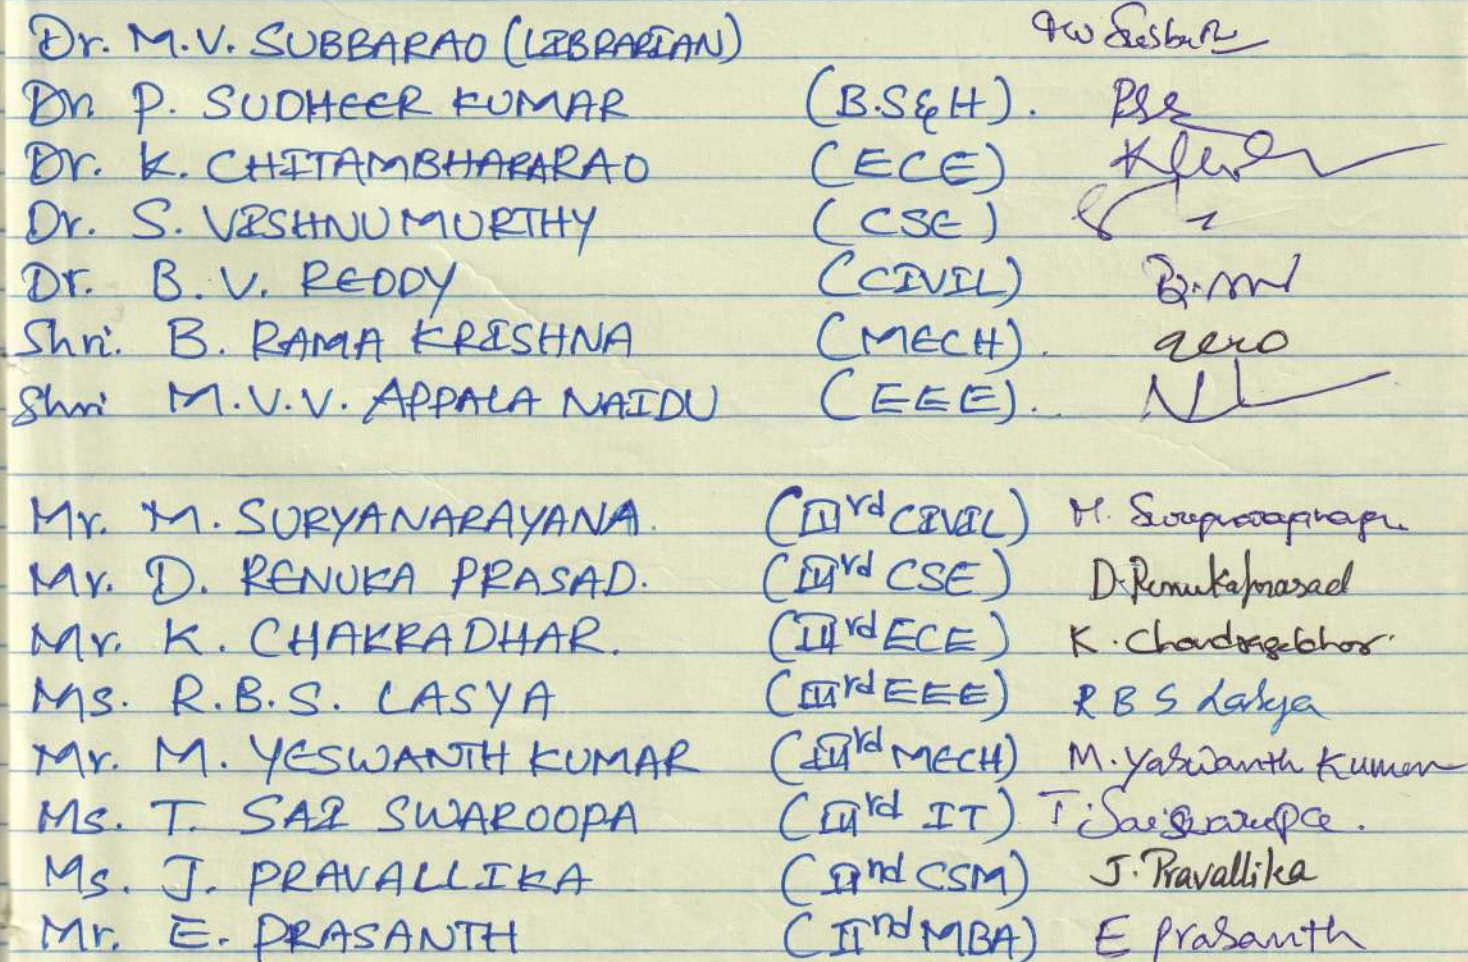 Dr. M.V. SUBBARAO (LIBRARIAN)
Dr. P. SUDHEER KUMAR (B.S&H).
Dr. K. CHITAMBHARARAO (ECE)
Dr. S. VISHNUMURTHY (CSE)
Dr. B.V. REDDY (CIVIL)
Shri. B. RAMA KRISHNA (MECH).
Shri M.V.V. APPALA NAIDU (EEE).
Mr. M. SURYANARAYANA. (IIrd CIVIL) M.
Mr. D. RENUKA PRASAD. (IIIrd CSE) D.Renukaprasad
Mr. K. CHAKRADHAR. (IIIrd ECE) K.
Ms. R.B.S. LASYA (IIIrd EEE) R B S Lasya
Mr. M. YESWANTH KUMAR (IIIrd MECH) M.Yaswanth Kumar
Ms. T. SAI SWAROOPA (IIIrd IT) T.
Ms. J. PRAVALLIKA (IInd CSM) J. Pravallika
Mr. E. PRASANTH (IInd MBA) E Prasanth